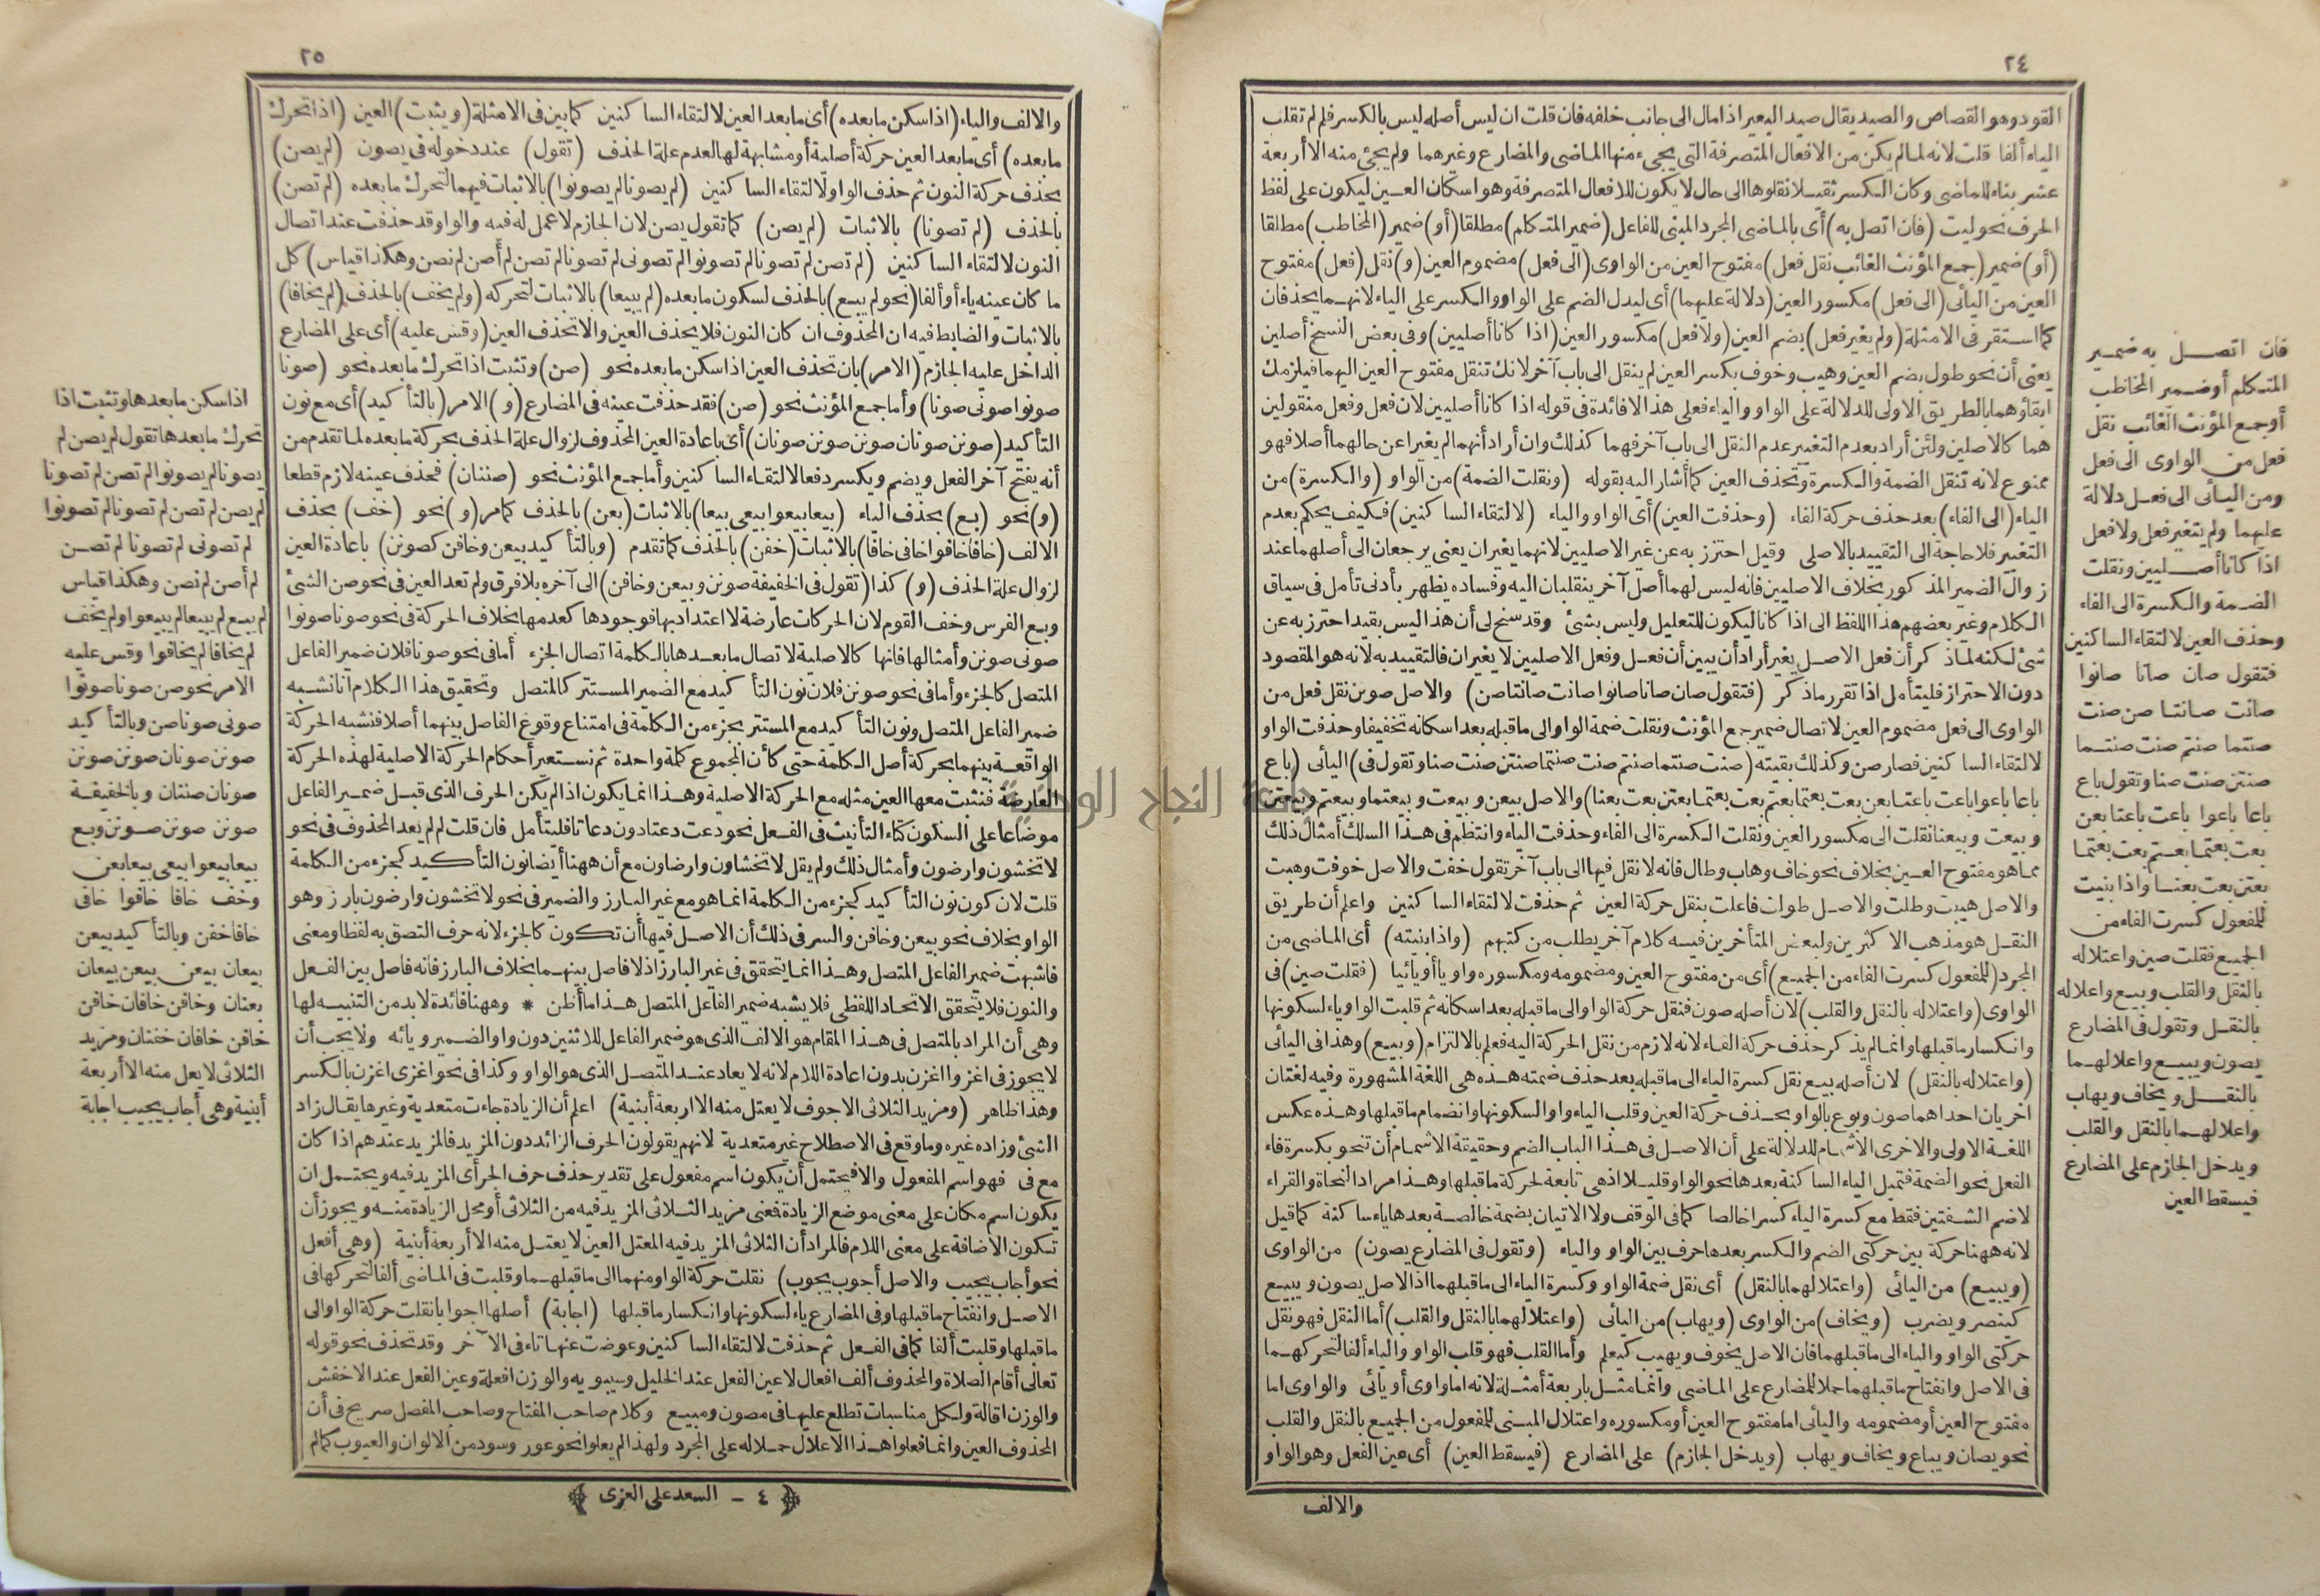 ٢٤
القود وهو القصاص والصيد يقال صيد البعير اذا مال الى جانب خلفه فان قلت ان ليس أصله ليس بالكسر فلم لم تقلب
الياء ألفا قلت لانه لما لم يكن من الافعال المتصرفة التى يجىء منها الماضى والمضارع وغيرهما ولم يجئ منه الا أربعة
عشر بناء للماضى وكان الكسر ثقيلا نقلوها الى حال لا يكون للافعال المتصرفة وهو اسكان العين ليكون على لفظ
الحرف نحو ليت (فان اتصل به) أى بالماضى المجرد المبنى للفاعل (ضمير المتكلم) مطلقا (أو) ضمير (المخاطب) مطلقا
(أو) ضمير (جمع المؤنث الغائب نقل فعل) مفتوح العين من الواوى (الى فعل) مضموم العين (و) نقل (فعل) مفتوح
العين من اليائى (الى فعل) مكسور العين (دلالة عليهما) أى ليدل الضم على الواو والكسر على الياء لانهما يحذفان
كما استقر فى الامثلة (ولم يغير فعل) بضم العين (ولا فعل) مكسور العين (اذا كانا أصليين) وفى بعض النسخ أصلين
يعنى أن نحو طول بضم العين وهيب وخوف بكسر العين لم ينقل الى باب آخر لانك تنقل مفتوح العين اليهما فيلزمك
ابقاؤهما بالطريق الاولى للدلالة على الواو والياء فعلى هذا لا فائدة فى قوله اذا كانا أصليين لان فعل وفعل منقولين
هما كالاصلين ولئن أراد بعدم التغيير عدم النقل الى باب آخر فهما كذلك وان أراد أنهما لم يغيرا عن حالهما أصلا فهو
ممنوع لانه تنقل الضمة والكسرة وتحذف العين كما أشار اليه بقوله (ونقلت الضمة) من الواو (والكسرة) من
الياء (الى الفاء) بعد حذف حركة الفاء (وحذفت العين) أى الواو والياء (لالتقاء الساكنين) فكيف يحكم بعدم
التغيير فلا حاجة الى التقييد بالاصلى وقيل احترز به عن غير الاصليين لانهما يغيران يعنى يرجعان الى أصلهما عند
زوال الضمير المذكور بخلاف الاصليين فانه ليس لهما أصل آخر ينقلبان اليه وفساده يظهر بأدنى تأمل فى سياق
الكلام وغير بعضهم هذا اللفظ الى اذ كانا ليكون للتعليل وليس بشئ وقد سنح لى أن هذا ليس بقيد احترز به عن
شئ لكنه لما ذكر أن فعل الاصل يغير أراد أن يبين أن فعل وفعل الاصليين لا يغيران فالتقييد به لانه هو المقصود
دون الاحتراز فليتأمل اذا تقرر ماذكر (فتقول صان صانا صانوا صانت صانتا صن) والاصل صون نقل فعل من
الواوى الى فعل مضموم العين لاتصال ضمير جمع المؤنث ونقلت ضمة الواو الى ما قبله بعد اسكانه تخفيفا وحذفت الواو
لالتقاء الساكنين فصار صن وكذلك بقيته (صنت صنتما صنتم صنت صنتما صنتن صنت صنا وتقول فى) اليائى (باع
باعا باعوا باعت باعتا بعن بعت بعتما بعتم بعت بعتما بعتن بعت بعنا) والاصل بيعن وبيعت وبيعتما وبيعتم وبيعتن
وبيعت وبيعنا نقلت الى مكسور العين ونقلت الكسرة الى الفاء وحذفت الياء وانتظم فى هذا السلك أمثال ذلك
مما هو مفتوح العين بخلاف نحو خاف وهاب وطال فانه لا نقل فيها الى باب آخر تقول خفت والاصل خوفت وهبت
والاصل هيبت وطلت والاصل طولت فاعلت بنقل حركة العين ثم حذفت لالتقاء الساكنين واعلم أن طريق
النقل هو مذهب الاكثرين ولبعض المتأخرين فيه كلام آخر يطلب من كتبهم (واذا بنيته) أى الماضى من
المجرد (للمفعول كسرت الفاء من الجميع) أى من مفتوح العين ومضمومه ومكسوره واويا أو يائيا (فقلت صين) فى
الواوى (واعتلاله بالنقل والقلب) لان أصله صون فنقل حركة الواو الى ما قبله بعد اسكانه ثم قلبت الواو ياء لسكونها
وانكسار ما قبلها وانما لم يذكر حذف حركة الفاء لانه لازم من نقل الحركة اليه فعلم بالالتزام (وبيع) وهذا فى اليائى
(واعتلاله بالنقل) لان أصله بيع نقل كسرة الياء الى ما قبله بعد حذف ضمته هذه هى اللغة المشهورة وفيه لغتان
اخريان احداهما صون وبوع بالواو بحذف حركة العين وقلب الياء واوا لسكونها وانضمام ما قبلها وهذه عكس
اللغة الاولى والاخرى الاشمام للدلالة على أن الاصل فى هذا الباب الضم وحقيقة الاشمام أن تنحو بكسرة فاء
الفعل نحو الضمة فتميل الياء الساكنة بعدها نحو الواو قليلا اذ هى تابعة لحركة ما قبلها وهذا مراد النحاة والقراء
لاضم الشفتين فقط مع كسرة الياء كسرا خالصا كما فى الوقف ولا الاتيان بضمة خالصة بعدها ياء ساكنة كما قيل
لانه ههنا حركة بين حركتى الضم والكسر بعدها حرف بين الواو والياء (وتقول فى المضارع يصون) من الواوى
(ويبيع) من اليائى (واعتلالهما بالنقل) أى نقل ضمة الواو وكسرة الياء الى ما قبلهما اذ الاصل يصون ويبيع
كينصر ويضرب (ويخاف) من الواوى (ويهاب) من اليائى (واعتلالهما بالنقل والقلب) أما النقل فهو نقل
حركتى الواو والياء الى ما قبلهما فان الاصل يخوف ويهيب كيعلم وأما القلب فهو قلب الواو والياء ألفا لتحركهما
فى الاصل وانفتاح ما قبلهما حملا للمضارع على الماضى وانما مثل باربعة أمثلة لانه اما واوى أو يائى والواوى اما
مفتوح العين أو مضمومه واليائى اما مفتوح العين أو مكسوره واعتلال المبنى للمفعول من الجميع بالنقل والقلب
نحو يصان ويباع ويخاف ويهاب (ويدخل الجازم) على المضارع (فيسقط العين) أى عين الفعل وهو الواو
والالف
فان اتصل به ضمير
المتكلم أو ضمير المخاطب
أو جمع المؤنث الغائب نقل
فعل من الواوى الى فعل
ومن اليائى الى فعل دلالة
عليهما ولم يتغير فعل ولا فعل
اذا كانا أصليين ونقلت
الضمة والكسرة الى الفاء
وحذف العين لالتقاء الساكنين
فتقول صان صانا صانوا
صانت صانتا صن صنت
صنتما صنتم صنت صنتما
صنتن صنت صنا وتقول باع
باعا باعوا باعت باعتا بعن
بعت بعتما بعتم بعت بعتما
بعتن بعت بعنا واذا بنيت
للمفعول كسرت الفاء من
الجميع فقلت صين واعتلاله
بالنقل والقلب وبيع واعلاله
بالنقل وتقول فى المضارع
يصون ويبيع واعلالهما
بالنقل ويخاف ويهاب
واعلالهما بالنقل والقلب
ويدخل الجازم على المضارع
فيسقط العين
٢٥
والالف والياء (اذا سكن ما بعده) أى ما بعد العين لالتقاء الساكنين كما بين فى الامثلة (ويثبت) العين (اذا تحرك
ما بعده) أى ما بعد العين حركة أصلية أو مشابهة لها لعدم علة الحذف (تقول) عند دخوله فى يصون (لم يصن)
بحذف حركة النون ثم حذف الواو لالتقاء الساكنين (لم يصونا لم يصونوا) بالاثبات فيهما لتحرك ما بعده (لم تصن)
بالحذف (لم تصونا) بالاثبات (لم يصن) كما تقول يصن لان الجازم لا عمل له فيه والواو قد حذفت عند اتصال
النون لالتقاء الساكنين (لم تصن لم تصونا لم تصونوا لم تصونى لم تصونا لم تصن لم أصن لم نصن وهكذا قياس) كل
ما كان عينه ياء أو ألفا (نحو لم يبع) بالحذف لسكون ما بعده (لم يبيعا) بالاثبات لتحركه (ولم يخف) بالحذف (لم يخافا)
بالاثبات والضابط فيه ان المحذوف ان كان النون فلا يحذف العين والا تحذف العين (وقس عليه) أى على المضارع
الداخل عليه الجازم (الامر) بان تحذف العين اذا سكن ما بعده نحو (صن) وتثبت اذا تحرك ما بعده نحو (صونا
صونوا صونى صونا) وأما جمع المؤنث نحو (صن) فقد حذفت عينه فى المضارع (و) الامر (بالتأكيد) أى مع نون
التأكيد (صونن صونان صونن صونن صونان) أى باعادة العين المحذوف لزوال علة الحذف بحركة ما بعده لما تقدم من
أنه يفتح آخر الفعل ويضم ويكسر دفعا لالتقاء الساكنين وأما جمع المؤنث نحو (صننان) فحذف عينه لازم قطعا
(و) نحو (بع) بحذف الياء (بيعا بيعوا بيعى بيعا) بالاثبات (بعن) بالحذف كما مر (و) نحو (خف) بحذف
الالف (خافا خافوا خافى خافا) بالاثبات (خفن) بالحذف كما تقدم (وبالتأكيد بيعن وخافن كصونن) باعادة العين
لزوال علة الحذف (و) كذا (تقول فى الخفيفة صونن وبيعن وخافن) الى آخره بلا فرق ولم تعد العين فى نحو صن الشئ
وبع الفرس وخف القوم لان الحركات عارضة لا اعتداد بها فوجودها كعدمها بخلاف الحركة فى نحو صونا صونوا
صونى صونن وأمثالها فانها كالاصلية لاتصال ما بعدها بالكلمة اتصال الجزء أما فى نحو صونا فلان ضمير الفاعل
المتصل كالجزء وأما فى نحو صونن فلان نون التأكيد مع الضمير المستتر كالمتصل وتحقيق هذا الكلام انا نشبه
ضمير الفاعل المتصل ونون التأكيد مع المستتر بجزء من الكلمة فى امتناع وقوع الفاصل بينهما أصلا فنشبه الحركة
الواقعة بينهما بحركة أصل الكلمة حتى كأن المجموع كلمة واحدة ثم نستعير أحكام الحركة الاصلية لهذه الحركة
العارضة فنثبت معها العين مثله مع الحركة الاصلية وهذا انما يكون اذا لم يكن الحرف الذى قبل ضمير الفاعل
موضاعا على السكون كتاء التأنيث فى الفعل نحو دعت دعتا دون دعاتا فليتأمل فان قلت لم لم يعد المحذوف فى نحو
لا تخشون وارضون وأمثال ذلك ولم يقل لا تخشاون وارضاون مع أن ههنا أيضا نون التأكيد كجزء من الكلمة
قلت لان كون نون التأكيد كجزء من الكلمة انما هو مع غير البارز والضمير فى نحو لا تخشون وارضون بارز وهو
الواو بخلاف نحو بيعن وخافن والسر فى ذلك أن الاصل فيها أن تكون كالجزء لانه حرف التصق به لفظا ومعنى
فاشبهت ضمير الفاعل المتصل وهذا انما يتحقق فى غير البارز اذ لا فاصل بينهما بخلاف البارز فانه فاصل بين الفعل
والنون فلا يتحقق الاتحاد اللفظى فلا يشبه ضمير الفاعل المتصل هذا ما أظن * وههنا فائدة لا بد من التنبيه لها
وهى أن المراد بالمتصل فى هذا المقام هو الالف الذى هو ضمير الفاعل للاثنين دون واو الضمير ويائه ولا يجب أن
لا يجوز فى اغزوا اغزن بدون اعادة اللام لانه لا يعاد عند المتصل الذى هو الواو وكذا فى نحو اغزى اغزن بالكسر
وهذا ظاهر (ومزيد الثلاثى الاجوف لا يعتل منه الا اربعة أبنية) اعلم أن الزيادة جاءت متعدية وغيرها يقال زاد
الشئ وزاده غيره وما وقع فى الاصطلاح غير متعدية لانهم يقولون الحرف الزائد دون المزيد فالمزيد عندهم اذا كان
مع فى فهو اسم المفعول والا فيحتمل أن يكون اسم مفعول على تقدير حذف حرف الجر أى المزيد فيه ويحتمل ان
يكون اسم مكان على معنى موضع الزيادة فمعنى مزيد الثلاثى المزيد فيه من الثلاثى أو محل الزيادة منه ويجوز أن
تكون الاضافة على معنى اللام فالمراد أن الثلاثى المزيد فيه المعتل العين لا يعتل منه الا أربعة أبنية (وهى أفعل
نحو أجاب يجيب والاصل أجوب يجوب) نقلت حركة الواو منهما الى ما قبلهما وقلبت فى الماضى ألفا لتحركها فى
الاصل وانفتاح ما قبلها وفى المضارع ياء لسكونها وانكسار ما قبلها (اجابة) أصلها اجوابا نقلت حركة الواو الى
ما قبلها وقلبت ألفا كما فى الفعل ثم حذفت لالتقاء الساكنين وعوضت عنها تاء فى الآخر وقد تحذف نحو قوله
تعالى أقام الصلاة والمحذوف ألف افعال لا عين الفعل عند الخليل وسيبويه والوزن افعلة وعين الفعل عند الاخفش
والوزن افالة ولكل مناسبات تطلع عليها فى مصون ومبيع وكلام صاحب المفتاح وصاحب المفصل صريح فى أن
المحذوف العين وانما فعلوا هذا الاعلال حملا له على المجرد ولهذا لم يعلوا نحو عور وسود من الالوان والعيوب كما لم
﴿ ٤ - السعد على العزى ﴾
اذا سكن ما بعدها وتثبت اذا
تحرك ما بعدها تقول لم يصن لم
يصونا لم يصونوا لم تصن لم تصونا
لم يصن لم تصن لم تصونا لم تصونوا
لم تصونى لم تصونا لم تصن
لم أصن لم نصن وهكذا قياس
لم يبع لم يبيعا لم يبيعوا ولم يخف
لم يخافا لم يخافوا وقس عليه
الامر نحو صن صونا صونوا
صونى صونا صن وبالتأكيد
صونن صونان صونن صونن
صونان صننان وبالخفيفة
صونن صونن صونن وبع
بيعا بيعوا بيعى بيعا بعن
وخف خافا خافوا خافى
خافا خفن وبالتأكيد بيعن
بيعان بيعن بيعن بيعان
بعنان وخافن خافان خافن
خافن خافان خفنان ومزيد
الثلاثى لا يعل منه الا أربعة
أبنية وهى أجاب يجيب اجابة
جامعة النجاح الوطنية